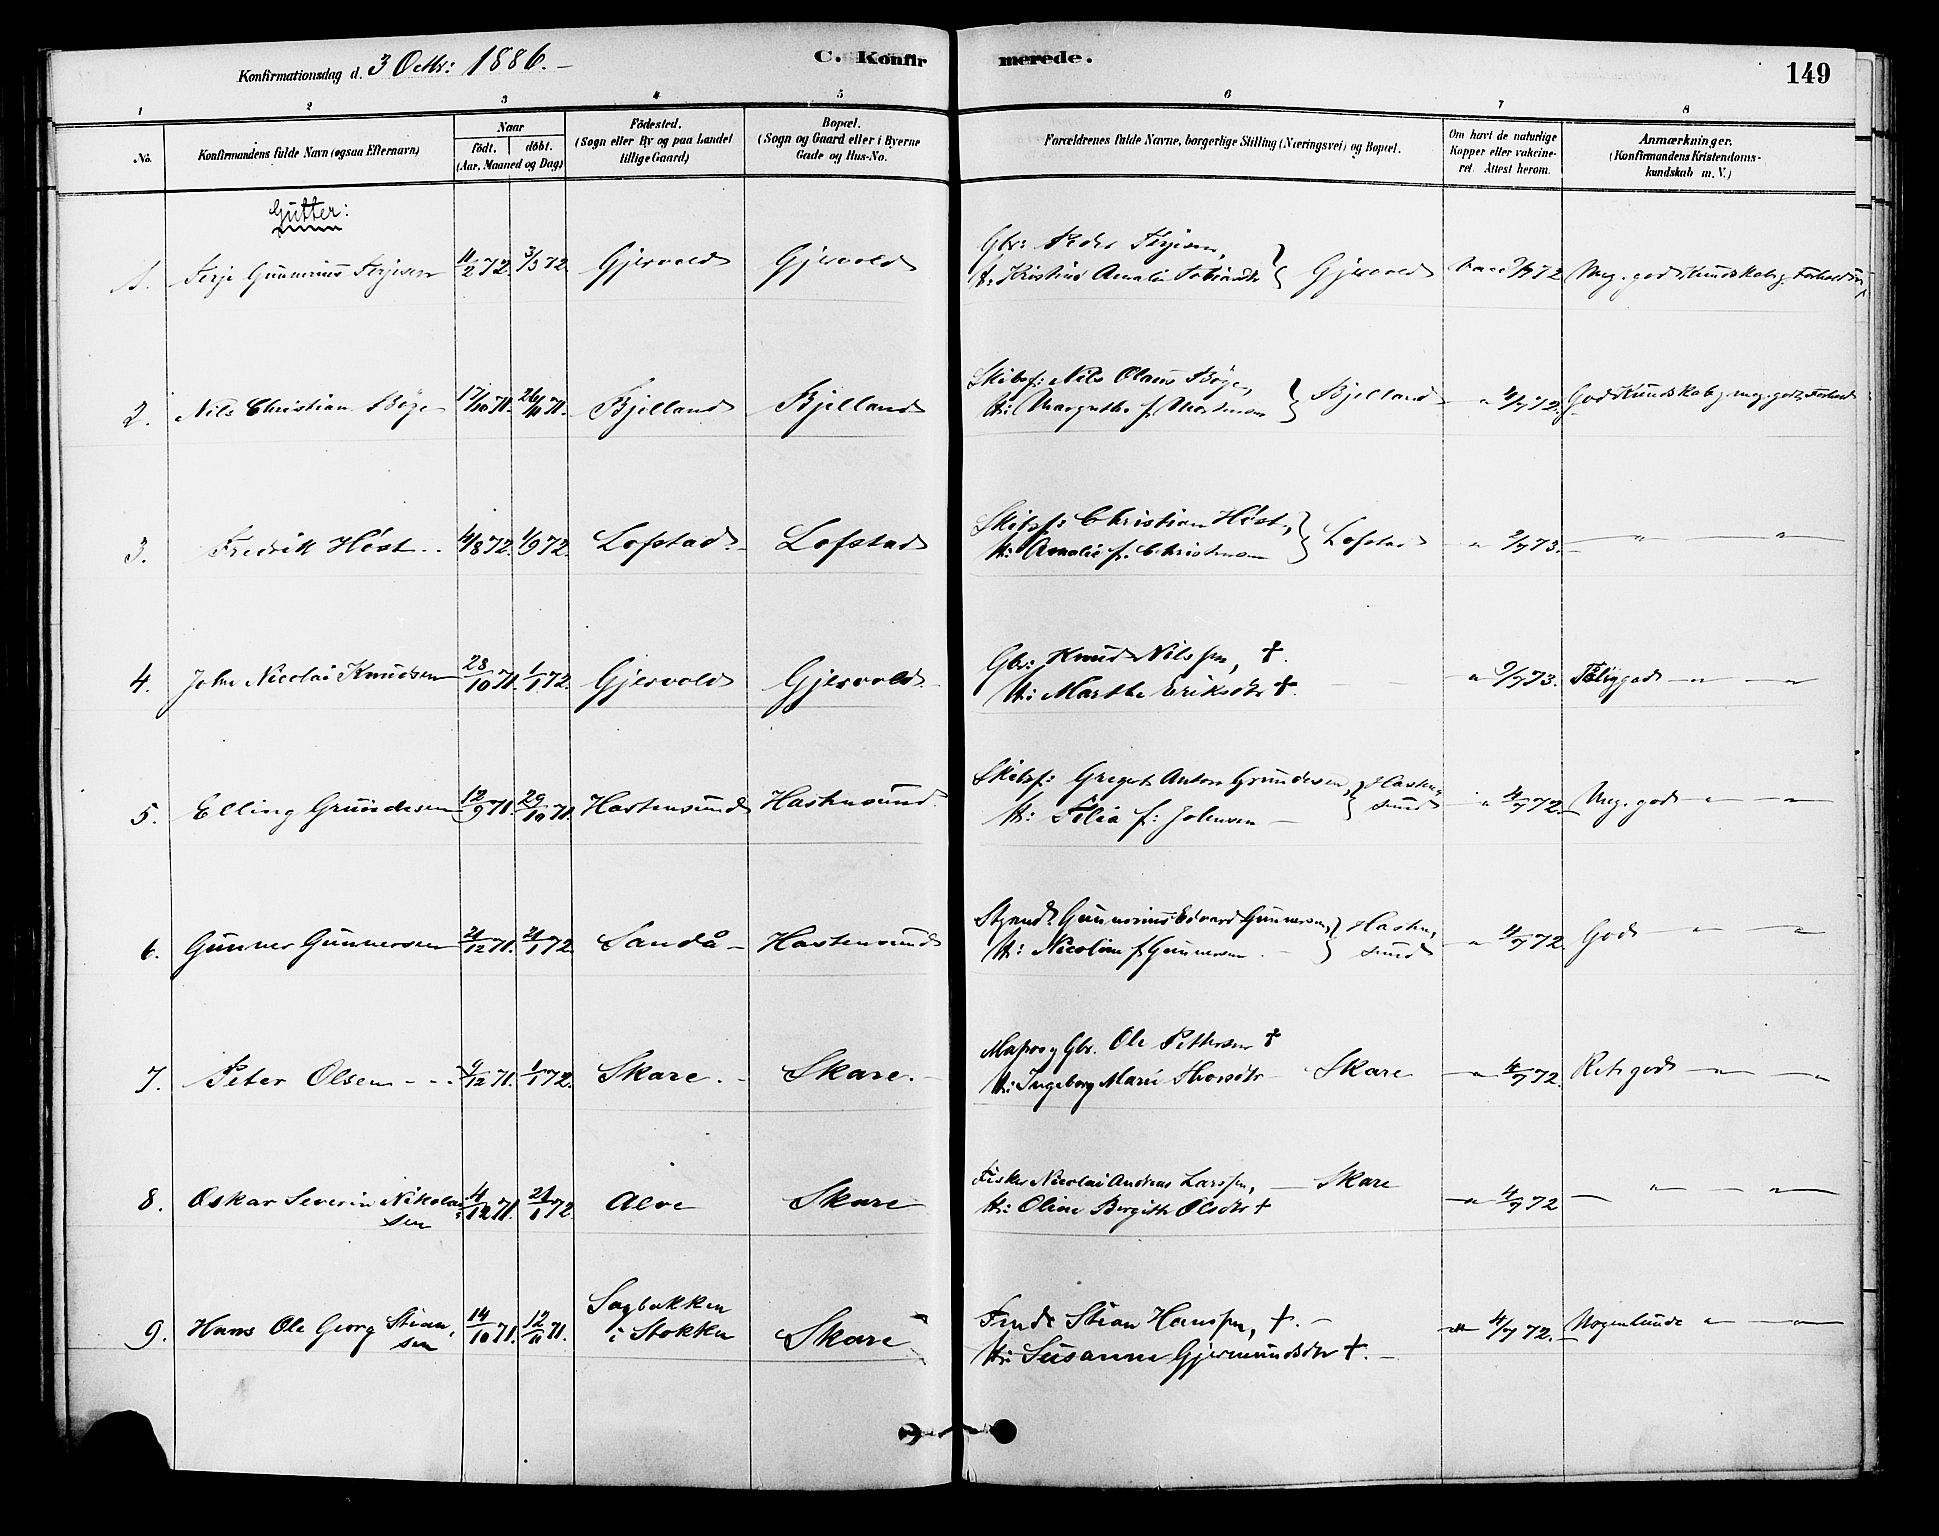 Konfirmationsdag d. 3 Octbr: 1886. –
C. Konfirmerede.
149
1 2 3 4 5 6 7 8
No. Konfirmandens fulde Navn (ogsaa Efternavn) Naar födt. döbt. (Aar, Maaned og Dag) Födested. (Sogn eller By og paa Landet tillige Gaard) Bopæl. (Sogn og Gaard eller i Byerne Gade og Hus-No. Forældrenes fulde Navne, borgerlige Stilling (Næringsvei) og Bopæl. Om havt de naturlige Kopper eller vakcineret. Attest herom. Anmærkninger. (Konfirmandens Kristendomskundskab m. V.)
Gutter:
1. Terje Gunnerius Terjesen 11/2 72. 3/3 72. Gjervold Gjervold Gbr: Peder Terjesen,
H: Kristine Amalie Tobiasdtr } Gjervold Vacc 72 Meg. god Kundskab g. Forhold
2. Nils Christian Böge 17/10 71. 26/11 71. Bjelland Bjelland Skibsf: Nils Olaus Böge,
H: Margrethe f. Mortensen } Bjelland " 4/7 72. God Kundskab g. meg. godt Forhold
3. Fredrik Höst 4/8 72. 1/9 72. Lofstad Lofstad Skibsf: Christian Höst,
H: Amalie f. Christensen } Lofstad " 2/7 73. – " – " –
4. John Nicolai Knudsen 28/10 71. 1/1 72. Gjervold Gjervold Gbr: Knud Nilssen, †.
H: Marthe Eriksdtr †. " 9/7 73. god – " – "
5. Elling Grundesen 12/9 71. 29/10 71. Hastensund Hastensund Skibsf: Gregert Anton Grundesen,
H: Tilia f: Johnsen – } Hastensund " 4/7 72. Meg. god – " – "
6. Gunner Gunnersen 21/12 71. 21/1 72. Sandå – Hastensund Styrmd. Gunnerius Edvard Gunnersen,
H: Nicoline f. Gunnersen } Hastensund " 4/7 72. God – " – "
7. Peter Olsen 9/12 71. 1/1 72. Skare. Skare. Gbr. Ole Pettersen †
H: Ingeborg Marie Thorsdtr – Skare – " 4/7 72. Ret god – " – "
8. Oskar Severin Nikolaisen 4/12 71. 21/1 72. Alve Skare Fisker Nicolai Andreas Larssen, – Skare
H: Oline Birgitte Olsdtr † – " 4/7 72 – " – " –
9. Hans Ole Georg Stiansen 14/10 71. 12/11 71. Sagbakken
i Stokken Skare Stian Hanssen, †. –
H: Susanne Gjermundsdtr †. – " 4/7 72. Nogenlunde " – " –